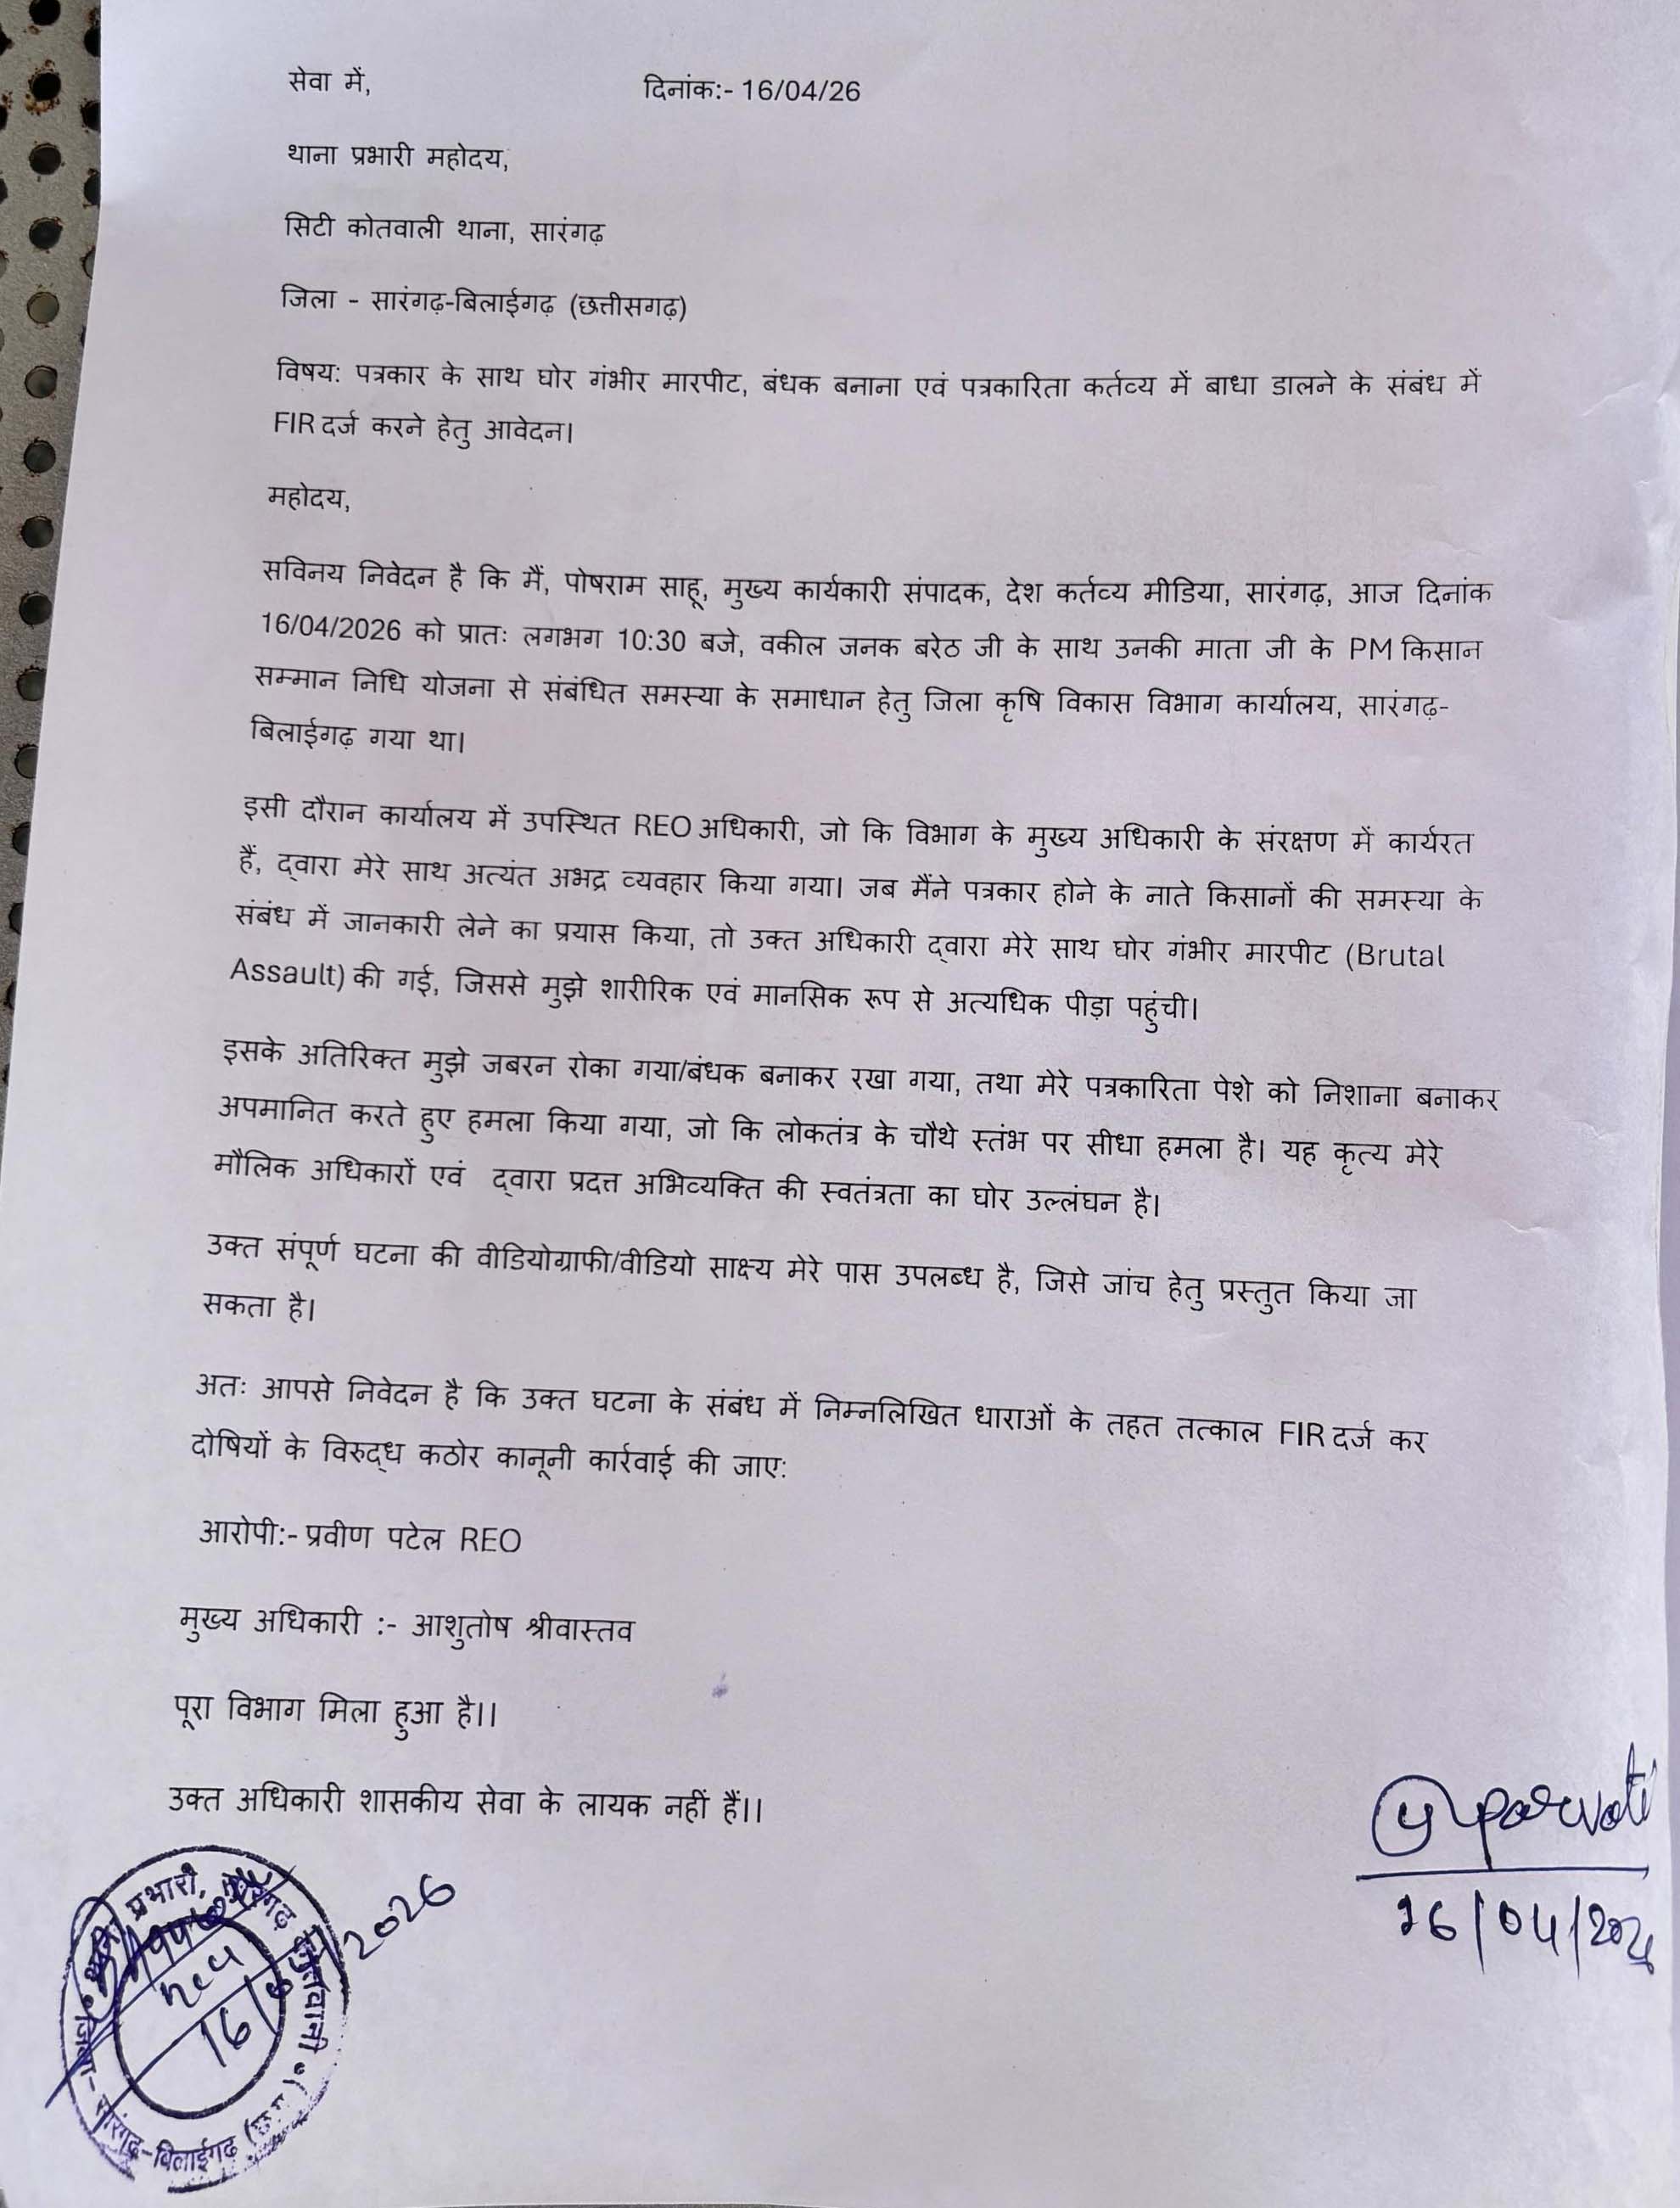 सेवा में, दिनांक:- 16/04/26
थाना प्रभारी महोदय,
सिटी कोतवाली थाना, सारंगढ़
जिला - सारंगढ़-बिलाईगढ़ (छत्तीसगढ़)
विषय: पत्रकार के साथ घोर गंभीर मारपीट, बंधक बनाना एवं पत्रकारिता कर्तव्य में बाधा डालने के संबंध में
FIR दर्ज करने हेतु आवेदन।
महोदय,
सविनय निवेदन है कि मैं, पोषराम साहू, मुख्य कार्यकारी संपादक, देश कर्तव्य मीडिया, सारंगढ़, आज दिनांक
16/04/2026 को प्रातः लगभग 10:30 बजे, वकील जनक बरेठ जी के साथ उनकी माता जी के PM किसान
सम्मान निधि योजना से संबंधित समस्या के समाधान हेतु जिला कृषि विकास विभाग कार्यालय, सारंगढ़-
बिलाईगढ़ गया था।
इसी दौरान कार्यालय में उपस्थित REO अधिकारी, जो कि विभाग के मुख्य अधिकारी के संरक्षण में कार्यरत
हैं, द्वारा मेरे साथ अत्यंत अभद्र व्यवहार किया गया। जब मैंने पत्रकार होने के नाते किसानों की समस्या के
संबंध में जानकारी लेने का प्रयास किया, तो उक्त अधिकारी द्वारा मेरे साथ घोर गंभीर मारपीट (Brutal
Assault) की गई, जिससे मुझे शारीरिक एवं मानसिक रूप से अत्यधिक पीड़ा पहुंची।
इसके अतिरिक्त मुझे जबरन रोका गया/बंधक बनाकर रखा गया, तथा मेरे पत्रकारिता पेशे को निशाना बनाकर
अपमानित करते हुए हमला किया गया, जो कि लोकतंत्र के चौथे स्तंभ पर सीधा हमला है। यह कृत्य मेरे
मौलिक अधिकारों एवं द्वारा प्रदत्त अभिव्यक्ति की स्वतंत्रता का घोर उल्लंघन है।
उक्त संपूर्ण घटना की वीडियोग्राफी/वीडियो साक्ष्य मेरे पास उपलब्ध है, जिसे जांच हेतु प्रस्तुत किया जा
सकता है।
अतः आपसे निवेदन है कि उक्त घटना के संबंध में निम्नलिखित धाराओं के तहत तत्काल FIR दर्ज कर
दोषियों के विरुद्ध कठोर कानूनी कार्रवाई की जाए:
आरोपी:- प्रवीण पटेल REO
मुख्य अधिकारी :- आशुतोष श्रीवास्तव
पूरा विभाग मिला हुआ है।।
उक्त अधिकारी शासकीय सेवा के लायक नहीं हैं।।
थाना प्रभारी, सारंगढ़ कोतवाली
जिला- सारंगढ़-बिलाईगढ़ (छ.ग.)
16/04/2026
16/04/202